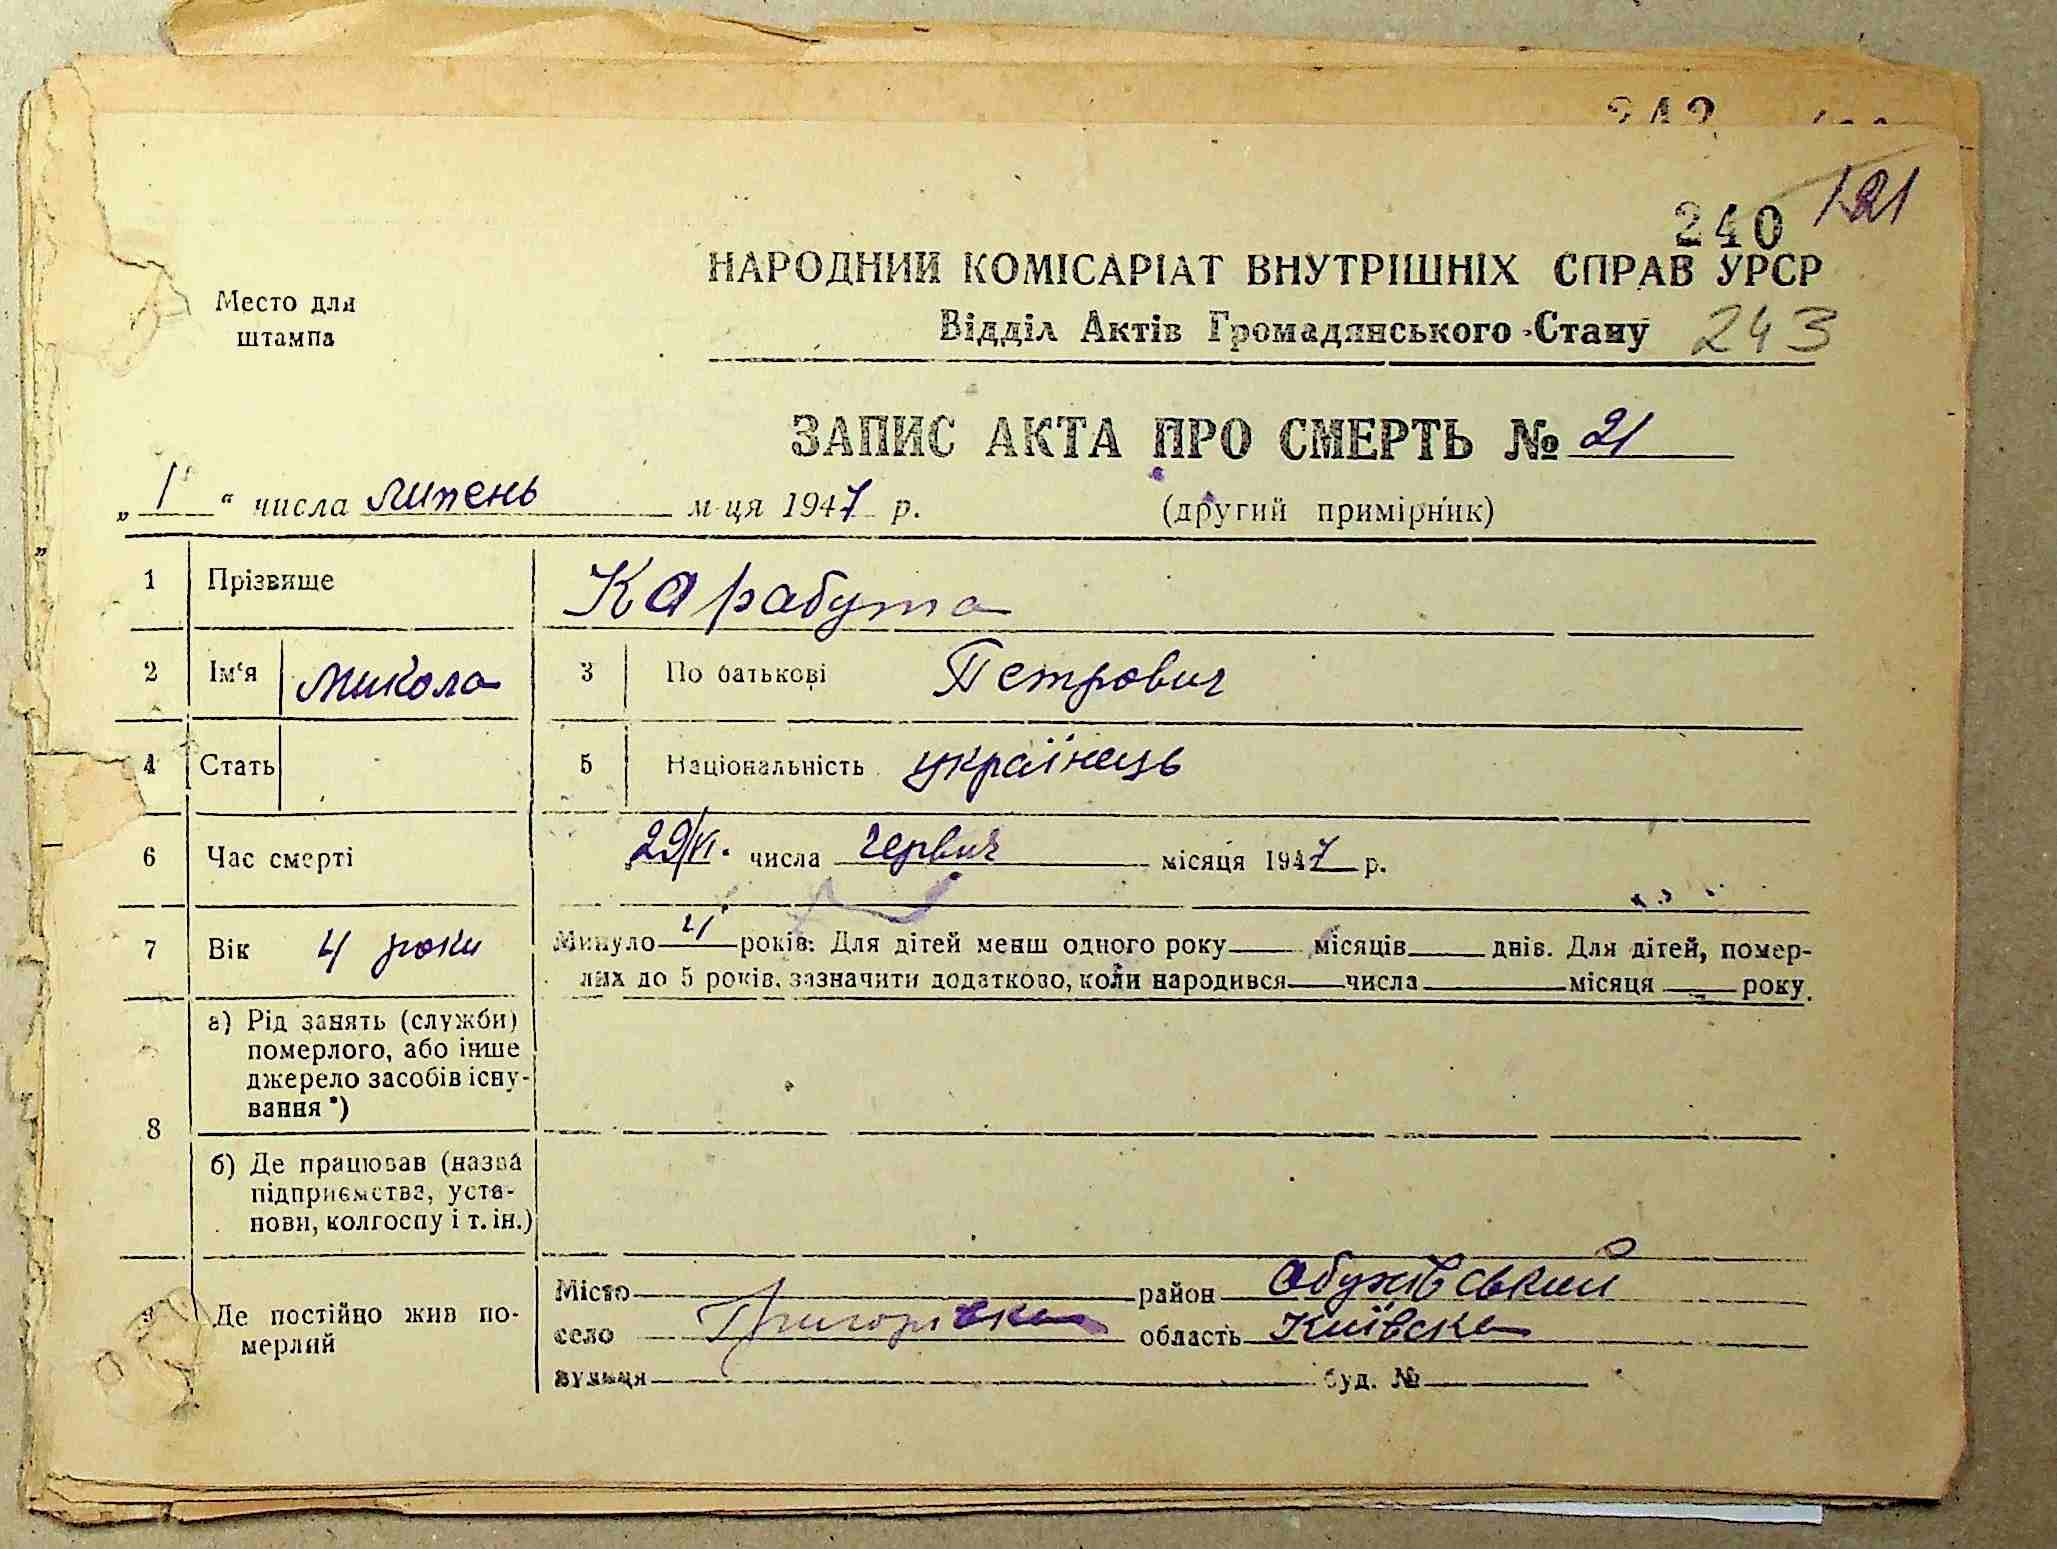 242
240 121
Место для
штампа
НАРОДНИЙ КОМІСАРІАТ ВНУТРІШНІХ СПРАВ УРСР
Відділ Актів Громадянського Стану 243
ЗАПИС АКТА ПРО СМЕРТЬ № 21
„1“ числа липень м-ця 1947 р. (другий примірник)
1 Прізвище Карабута
2 Ім‘я Микола 3 По батькові Петрович
4 Стать 5 Національність українець
6 Час смерті 29/VI. числа червня місяця 1947 р.
7 Вік 4 роки Минуло 4 років. Для дітей менш одного року місяців днів. Для дітей, помер-
лих до 5 років, зазначити додатково, коли народився числа місяця року.
8 а) Рід занять (служби)
померлого, або інше
джерело засобів існу-
вання *)
б) Де працював (назва
підприємства, уста-
нови, колгоспу і т. ін.)
9 Де постійно жив по-
мерлий
Місто район Обухівський
село Григорівка область Київська
вулиця буд. №